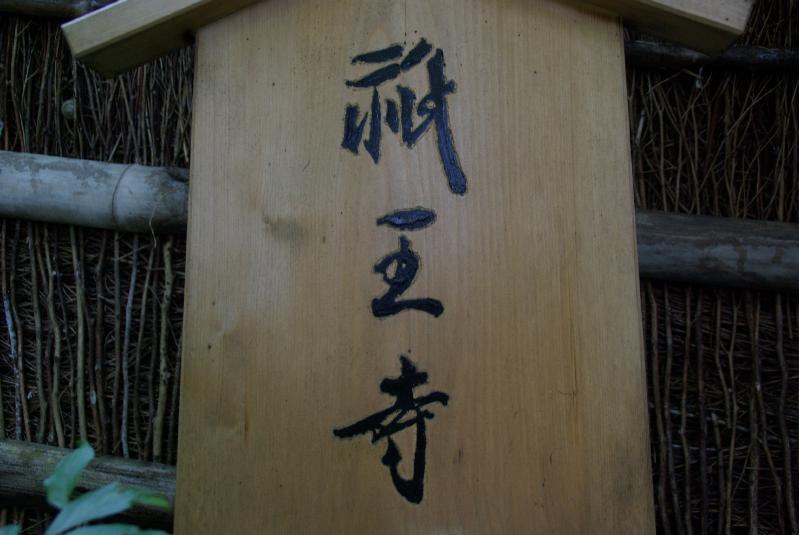 祇王寺